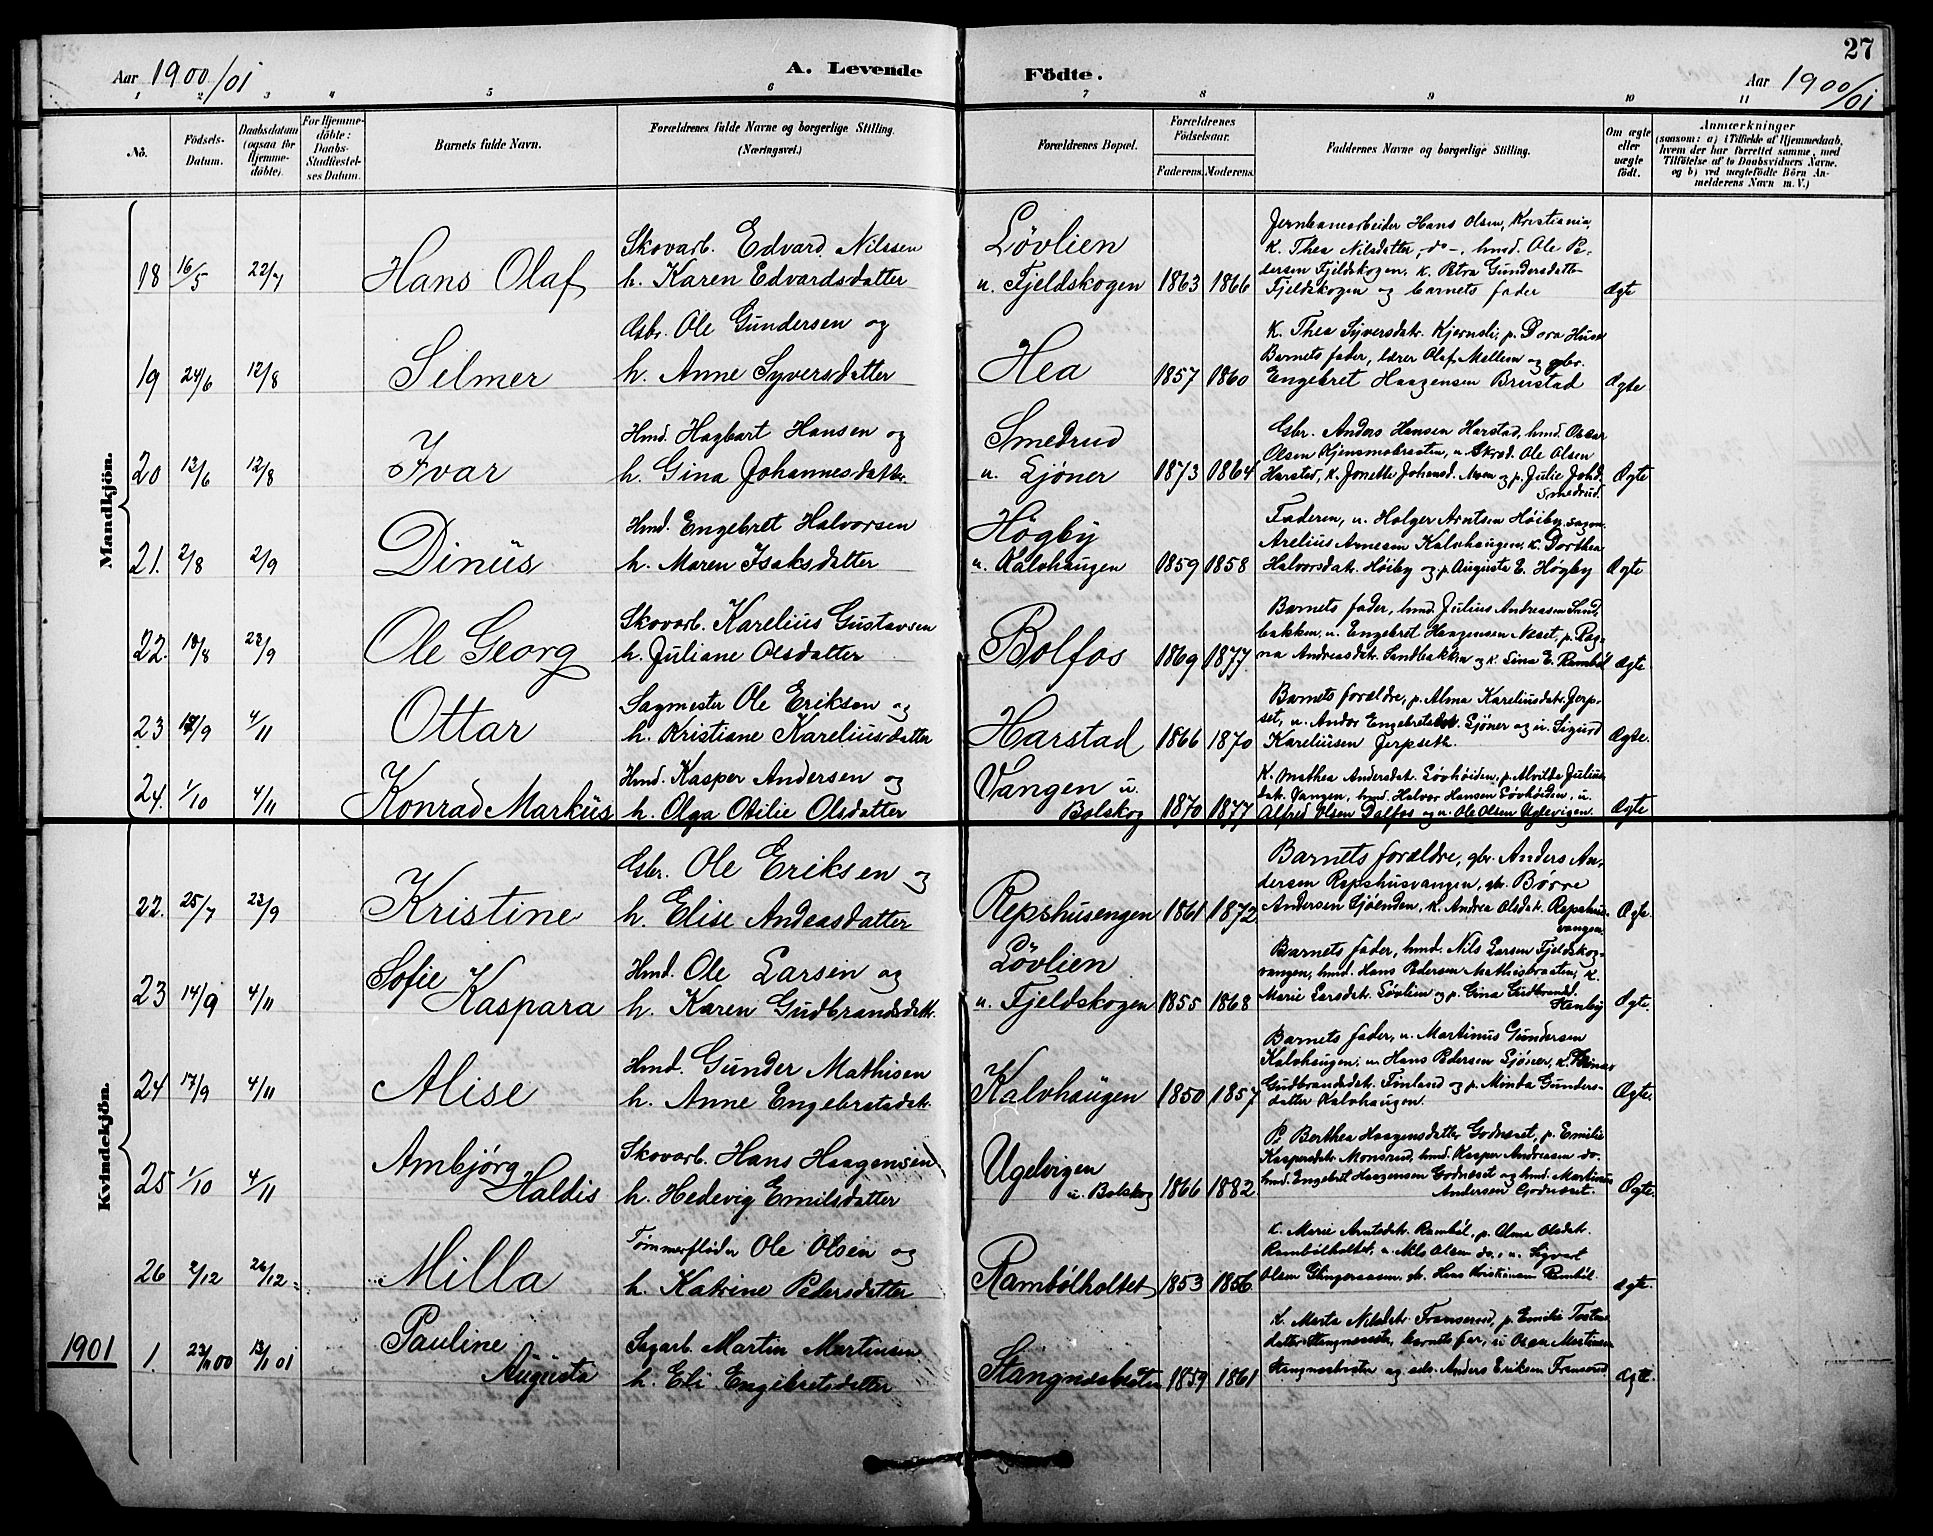 27
Aar 1900/01
A. Levende Födte.
Aar 1900/01
1 2 3 4 5 6 7 8 9 10 11
No.
Födsels-Datum.
Daabsdatum (ogsaa for Hjemme-döbte).
For Hjemme-döbte: Daabs-Stadfæstel-ses Datum.
Barnets fulde Navn.
Forældrenes fulde Navne og borgerlige Stilling. (Næringsvei.)
Forældrenes Bopæl.
Forældrenes Födselsaar.
Faderens. Moderens.
Faddernes Navne og borgerlige Stilling.
Om ægte eller uægte født.
Anmærkninger
(saasom: a) i Tilfælde af Hjemmedaab, hvem der har forrettet samme, med Tilföielse af to Daabsvidners Navne, og b) ved uægtefödte Börn An-melderens Navn m. V.)
Mandkjön.
18 16/5 22/7 Hans Olaf
Skovarb. Edvard Nilssen
h. Karen Edvardsdatter
Løvlien
u. Fjeldskogen 1863 1866
Jernbanearbeider Hans Olsen, Kristiania,
K. Thea Nilsdatter, do -, hmd. Ole Pe-
dersen Fjeldskogen, K. Petra Gundersdatter
Fjeldskogen og barnets fader Ægte
19 24/6 12/8 Selmer
Gbr. Ole Gundersen og
h. Anne Syversdatter
Hea 1857 1860
K. Thea Syversdatr. Kjernsli, p. Dora Huse
Barnets fader, lærer Olaf Mellem og gbr.
Engebret Haagensen Brustad Ægte
20 13/6 12/8 Ivar
Hmd. Hagbart Hansen og
h. Gina Johannesdatter
Smedrud
u. Sjöner 1873 1864
Gbr. Anders Hansen Harstad, hmd. Oskar
Olsen Kjensmobraaten, u. Skræd. Ole Olsen
Harstad, K. Jonette Johansd. Moen og p. Julie Johd.
Smedrud. Ægte
21. 2/8 2/9 Dinüs
Hmd. Engebret Halvorsen
h. Maren Isaksdatter
Högby
u. Kalvhaugen 1859 1858
Faderen, u. Holger Arntsen Höiby,
Arelius Arnesen Kalvhaugen, K. Dorthea
Halvorsdatr. Höiby og p. Auguste E. Högby Ægte
22. 18/8 23/9 Ole Georg
Skovarb. Karelius Gustavsen
h. Juliane Olsdatter
Bolfos 1869 1877
Barnets fader, hmd. Julius Andreasen Sand,
bakken, u. Engebret Haagensen Næset, p. Rag-
na Andreasdatr. Sandbakken og K. Lina E. Ramböl Ægte
23 18/9 4/11 Ottar
Sagmester Ole Eriksen og
h. Kristiane Kareliusdatter
Harstad 1866 1870
Barnets forældre, p. Alma Kareliusdatr. Jerp-
set, u. Andor Engebretsen Sjöner og u. Sigurd
Kareliüsen Jerpseth. Ægte.
24. 1/10 4/11 Konrad Markus
Hmd. Kasper Andersen og
h. Olga Otilie Olsdatter
Vangen u.
Bolskog 1870 1877
K. Mathea Andersdatr. Lövhöiden, p. Alvilde Julius
datr. Vangen, hmd. Halvor Hansen Lövhöiden, u.
Alfred Olsen Dalfos og u. Ole Olsen Uglevigen. Ægte
Kvindekjön.
22. 25/7 23/9 Kristine
Gbr. Ole Eriksen og
h. Elise Andeasdatter
Repshusengen 1861 1872
Barnets forældre, gbr. Anders An-
dersen Repshusvangen, gbr. Börre
Andersen Sjöenden, K. Andrea Olsdatr. Repshus-
vangen Ægte.
23 14/9 4/11 Sofie Kaspara
Hmd. Ole Larsen og
h. Karen Gudbrandsdatr.
Lövlien
u. Fjeldskogen 1855 1868
Barnets fader, hmd. Nils Larsen Fjeldskog-
vangen, hmd. Hans Pedersen Mathisbraaten, K.
Marie Larsdatr. Lövlien og p. Gina Gudbrandsd.
Henby Ægte.
24 17/9 4/11 Alise
Hmd. Gunder Mathisen
h. Anne Engebretsdatr.
Kalvhaügen 1850 1857
Barnets fader, u. Martinus Gundersen
Kalvhaugen, u. Hans Pedersen Sjöner, K.
Gudbrandsdatr. Finland og p. Minda Gunders-
datter Kalvhaugen. Ægte.
25 1/10 4/11 Ambjörg Haldis
Skovarb. Hans Haagensen
h. Hedevig Emilsdatter
Ugelvigen
u. Bolskog 1866 1882
P. Berthea Haagensdatter Godnæset, p. Emilie
Kaspersdatr. Monsrud, hmd. Kasper Andreasen do.
hmd. Engebret Haagensen Godnæset og hmd. Martinus
Andersen Godnæset. Ægte.
26 2/12 26/12 Milla
Tömmerfløder Ole Olsen og
h. Katrine Pedersdatter
Rambölholtet 1853 1856
K. Marie Arntsdatr. Ramböl, p. Olma Olsdatr.
Rambölholtet, u. Nils Olsen do., u. Syvert
Olsen, Hans Kristiansen Ramböl. Ægte.
1901
1. 23/11 00 13/1 01 Pauline Augusta
Sagarb. Martin Martinsen
h. Eli Engebretsdatter
Stangnesbraaten 1859 1861
K. Marta Nilsdatr. Fransrud, p. Emilie
barnets far, u. Martinsen
og Anders Eriksen Fransrud Ægte.